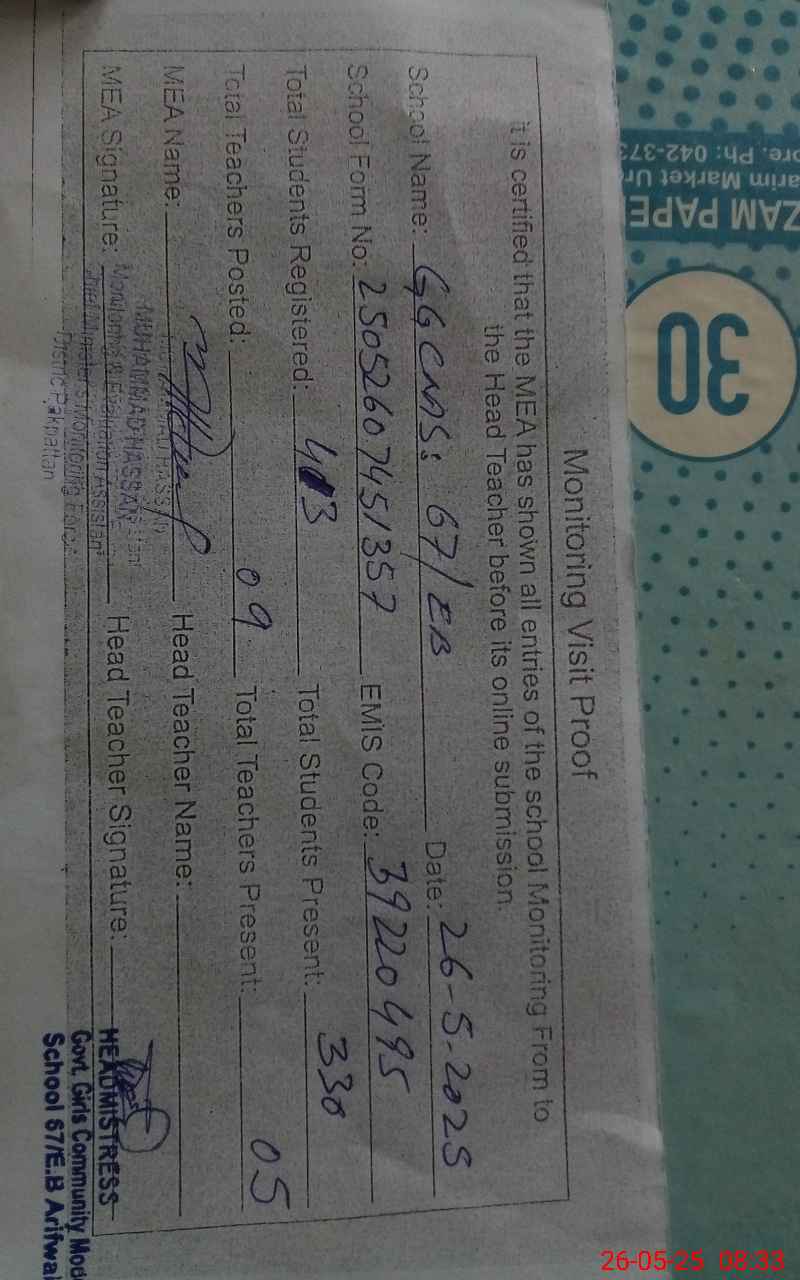 Monitoring Visit Proof
it is certified that the MEA has shown all entries of the school Monitoring From to
the Head Teacher before its online submission.
School Name: GGCMS: 67/EB Date: 26-5-2025
School Form No: 25052607451357 EMIS Code: 39220495
Total Students Registered: 413 Total Students Present: 330
Total Teachers Posted: 09 Total Teachers Present: 05
MEA Name: Head Teacher Name:
MEA Signature: Head Teacher Signature:
MUHAMMAD HASSAN
Monitoring & Evaluation Assistant
Chief Minister's Monitoring Force
District Pakpattan
HEADMISTRESS
Govt. Girls Community Mod
School 67/E.B Arifwal
ore. Ph: 042-373
arim Market Ur
ZAM PAPE
30
26-05-25 08:33